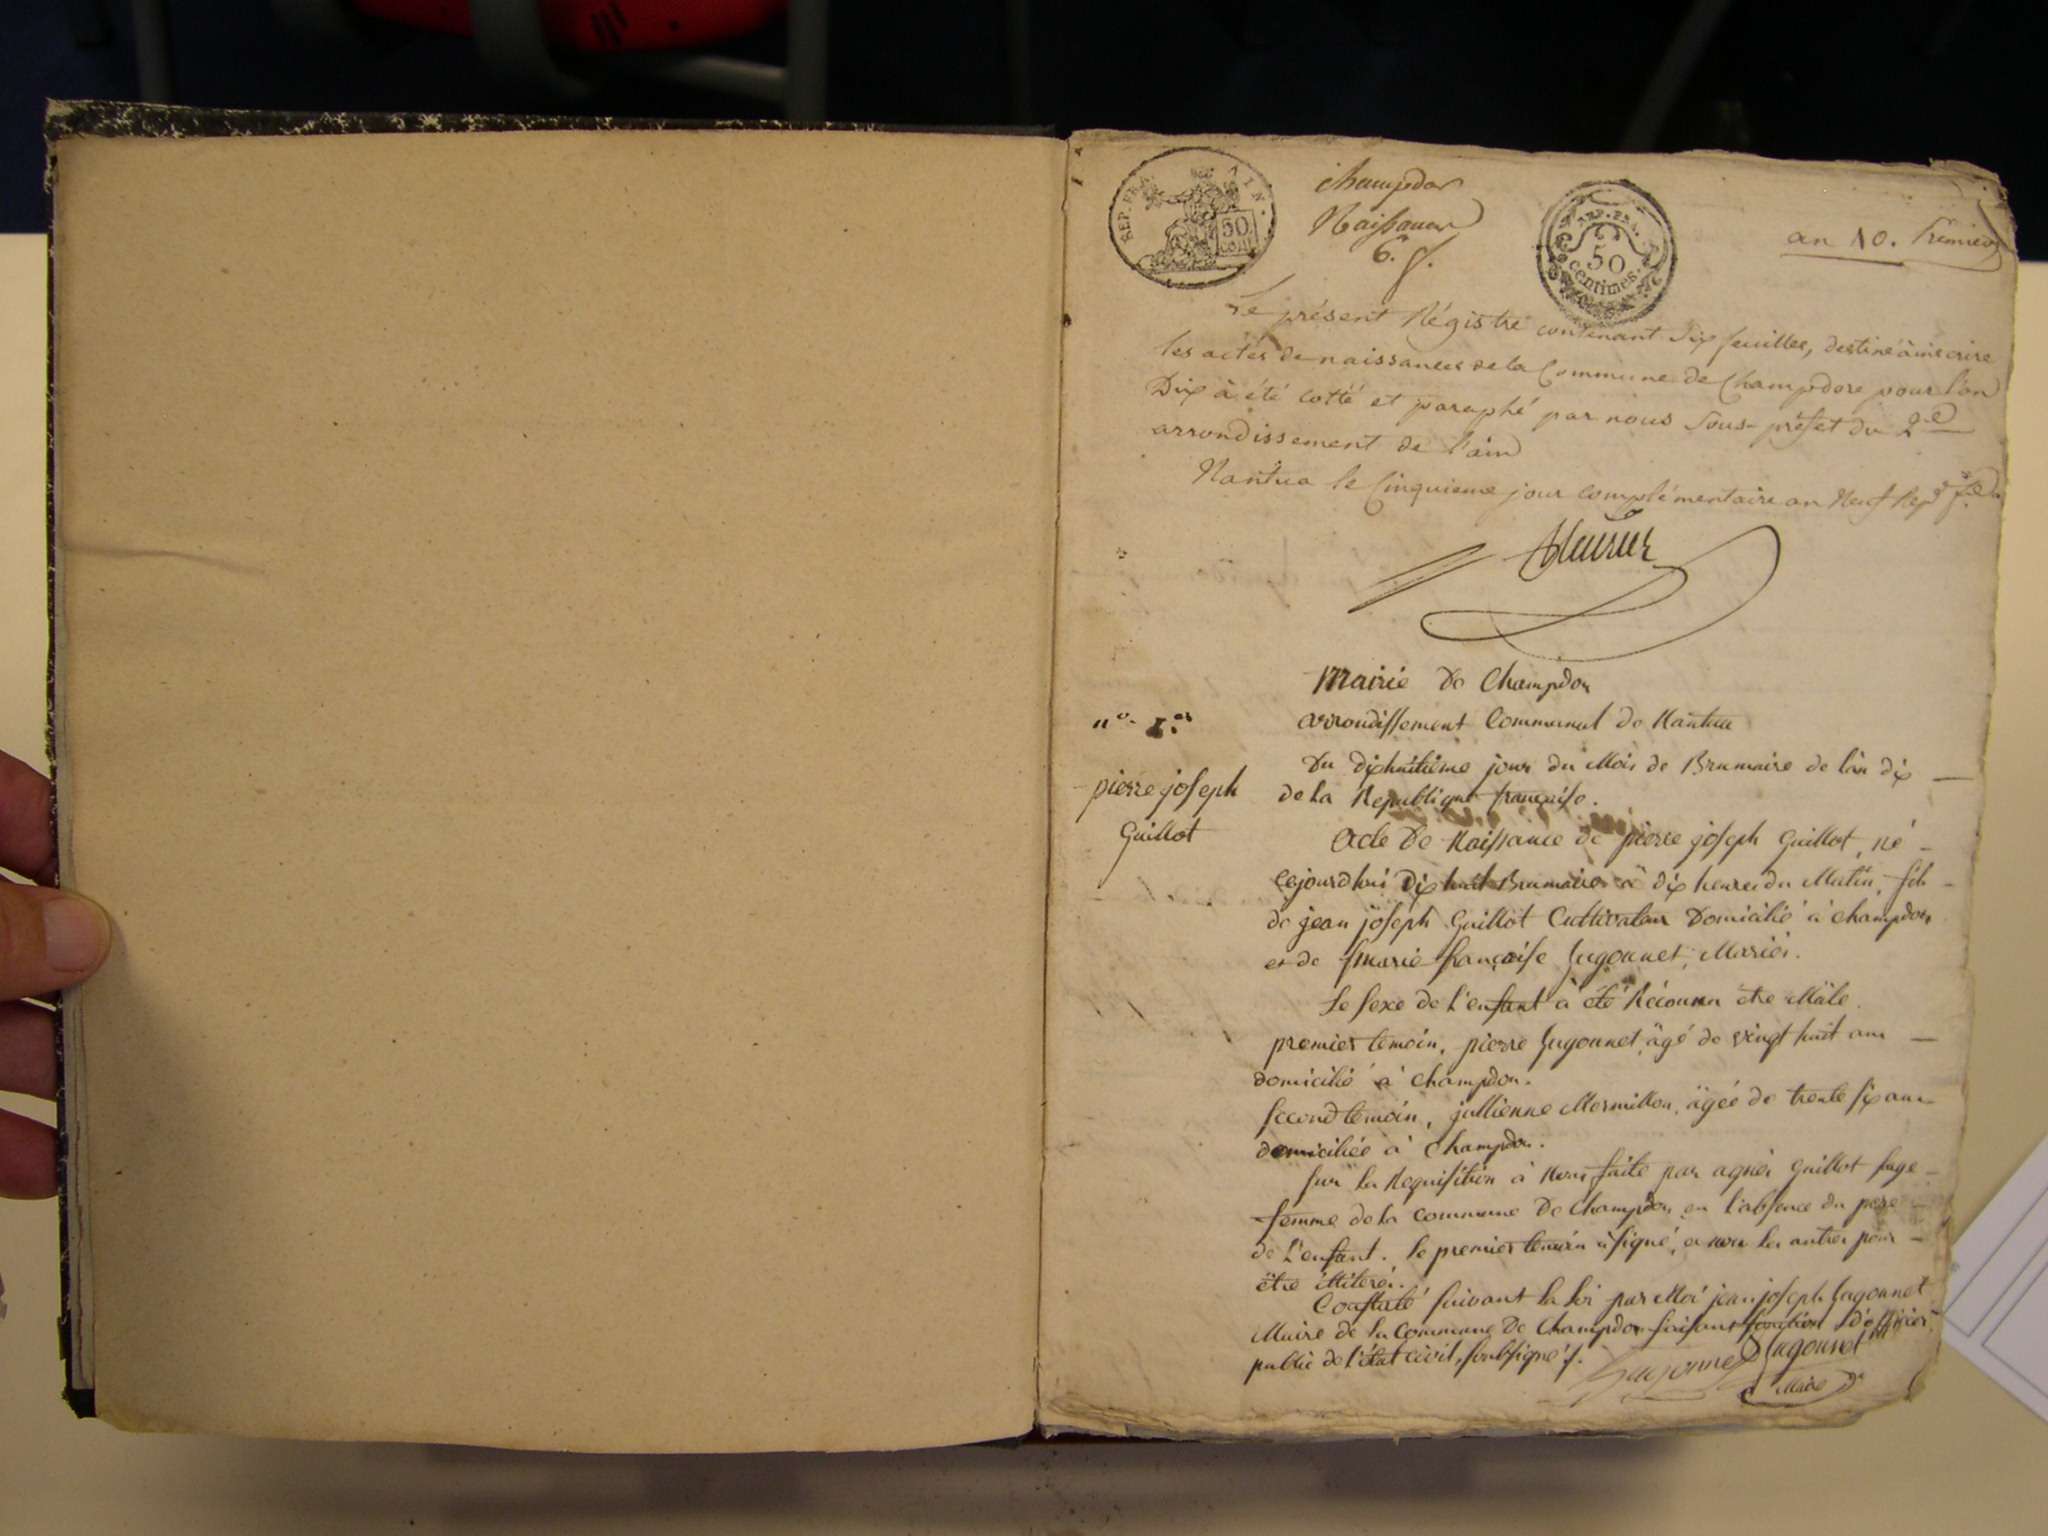 REP. FRA. AIN.
50
champdor
Naissances
6. f.
REP. FRA.
50
centimes.
an 10. Premier
Le présent Régistre contenant Six feuilles, destiné à inscrire
les actes de naissances de la Commune de Champdore pour l'an
Dix à été cotté et paraphé par nous Sous-préfet du 2e
arrondissement de l'ain
Nantua le Cinquieme jour complémentaire an Neuf
Mairie De Champdor
arrondissement Communal de Nantua
n°. 1er
Du dixhuitième jour du Mois de Brumaire de l'an dix
de la Republique française.
pierre joseph
Guillot
Acte De Naissance de pierre joseph Guillot, né
cejourdhui dix huit Brumaire à dix heures du Matin, fils
de jean joseph Guillot Cultivateur Domicilié à champdor
et de marie françoise Jugonnet, Mariés.
Le sexe de l'enfant à été Réconnu être Mâle.
premier temoin, pierre Jugonnet, âgé de vingt huit ans
domicilié à champdor.
second temoin, jullienne Mermillon, âgée de trente six ans
domiciliée à Champdor.
sur la Requisition à Nous faite par agnès Guillot sage
femme de la commune De Champdor, en l'absence du pere
de L'enfant. le premier temoin à signé, et non les autres pour
être illiterés.
Constaté suivant la loi par Moi jean joseph Jugonnet
Maire de la Commune De Champdor faisant fonction d'officier
public de l'état civil, soussignés.
Jugonnet Jugonnet
Maire